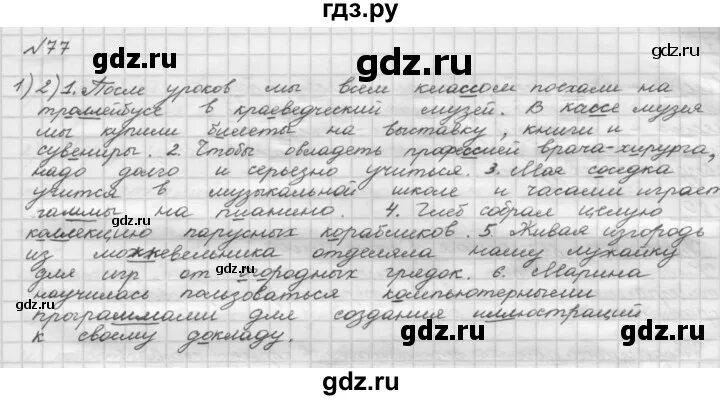 гдз.ру
№77
1) 2) 1. После уроков мы всем классом поехали на
троллейбусе в краеведческий музей. В кассе музея
мы купили билеты на выставку, книги и
сувениры. 2. Чтобы овладеть профессией врача-хирурга,
надо долго и серьезно учиться. 3. Моя соседка
учится в музыкальной школе и часами играет
гаммы на пианино. 4. Глеб собрал целую
коллекцию парусных корабликов. 5. Живая изгородь
из можжевельника отделяла нашу лужайку
для игр от огородных грядок. 6. Марина
научилась пользоваться компьютерными
программами для создания иллюстраций
к своему докладу.
gdz.ru
gdz.ru
gdz.ru
gdz.ru
gdz.ru
gdz.ru
gdz.ru
gdz.ru
gdz.ru
gdz.ru
gdz.ru
gdz.ru
gdz.ru